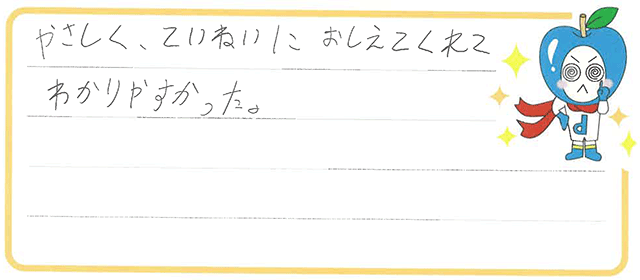 やさしく、ていねいに おしえてくれて
わかりやすかった。
d